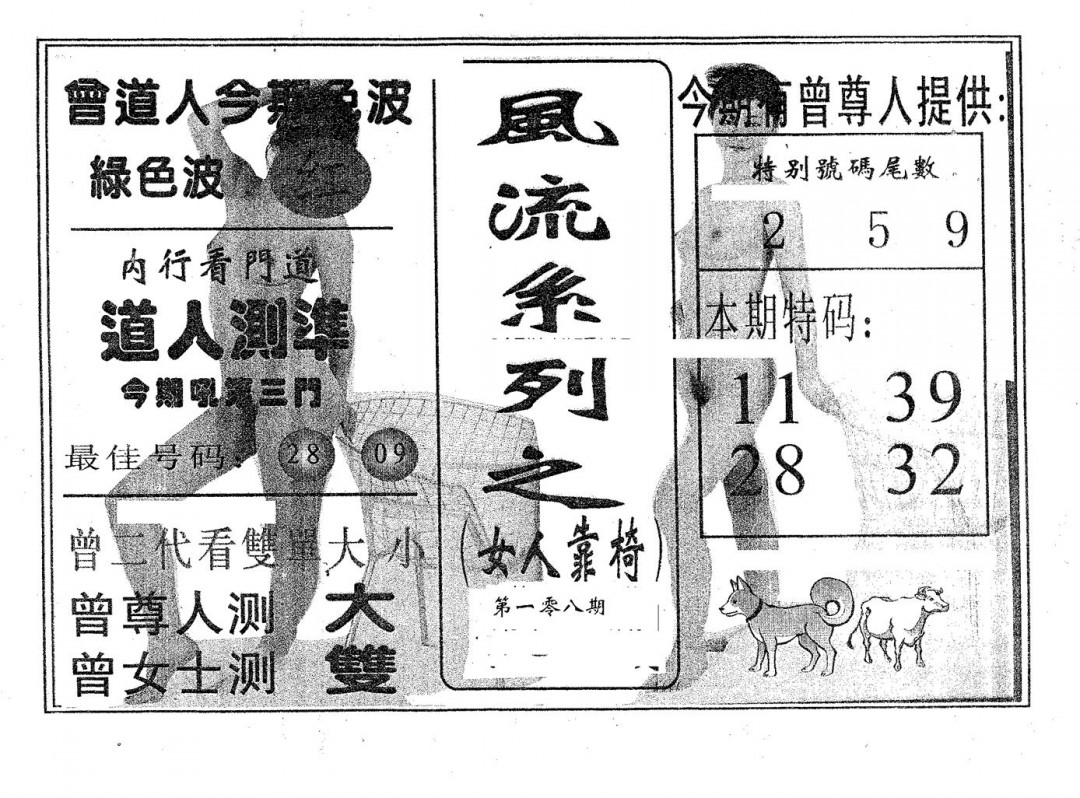 曾道人今期色波
綠色波
紅
内行看門道
道人測準
今期吼準三門
最佳号码: 28 09
曾二代看雙單大小
曾尊人测 大
曾女士测 雙
風流系列之
(女人靠椅)
第一零八期
今期有曾尊人提供:
特别號碼尾數
2 5 9
本期特码:
11 39
28 32